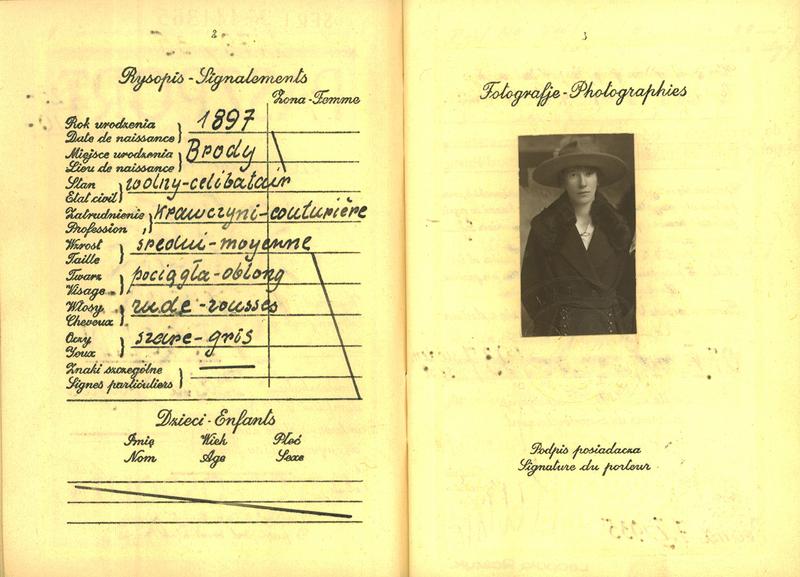 2
Rysopis - Signalements
Żona - Femme
Rok urodzenia
Date de naissance
1897
Miejsce urodzenia
Lieu de naissance
Brody
Stan
Etat civil
wolny-celibatair
Zatrudnienie
Profession
Krawczyni-couturière
Wzrost
Taille
średni-moyenne
Twarz
Visage
pociągła-oblong
Włosy
Cheveux
rude-rousses
Oczy
Yeux
szare-gris
Znaki szczególne
Signes particuliers
Dzieci - Enfants
Imię Wiek Płeć
Nom Age Sexe
3
Fotografje - Photographies
Podpis posiadacza
Signature du porteur